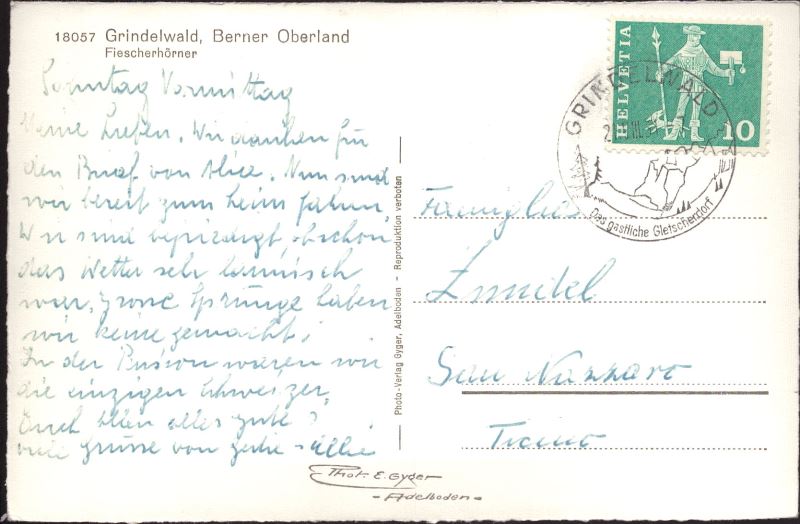 18057 Grindelwald, Berner Oberland
Fiescherhörner
Sonntag Vormittag
Meine Lieben. Wir danken für
den Brief von Alice. Nun sind
wir bereit zum heim fahren,
Wir sind befriedigt, obschon
das Wetter sehr launisch
war, grosse Sprünge haben
wir keine gemacht!
In der Pension waren wir
die einzigen Schweizer,
Euch allen alles gute &
viele Grüsse von
HELVETIA
10
GRINDELWALD
Das gastliche Gletscherdorf
Photo-Verlag Gyger, Adelboden - Reproduktion verboten
San Nazzaro
Ticino
Phot. E. Gyger
-Adelboden-